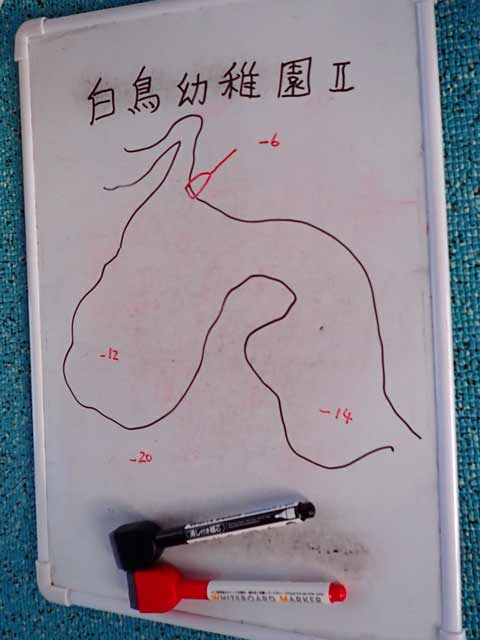 白鳥幼稚園Ⅱ
-6
-12
-14
-20
WHITEBOARD MARKER